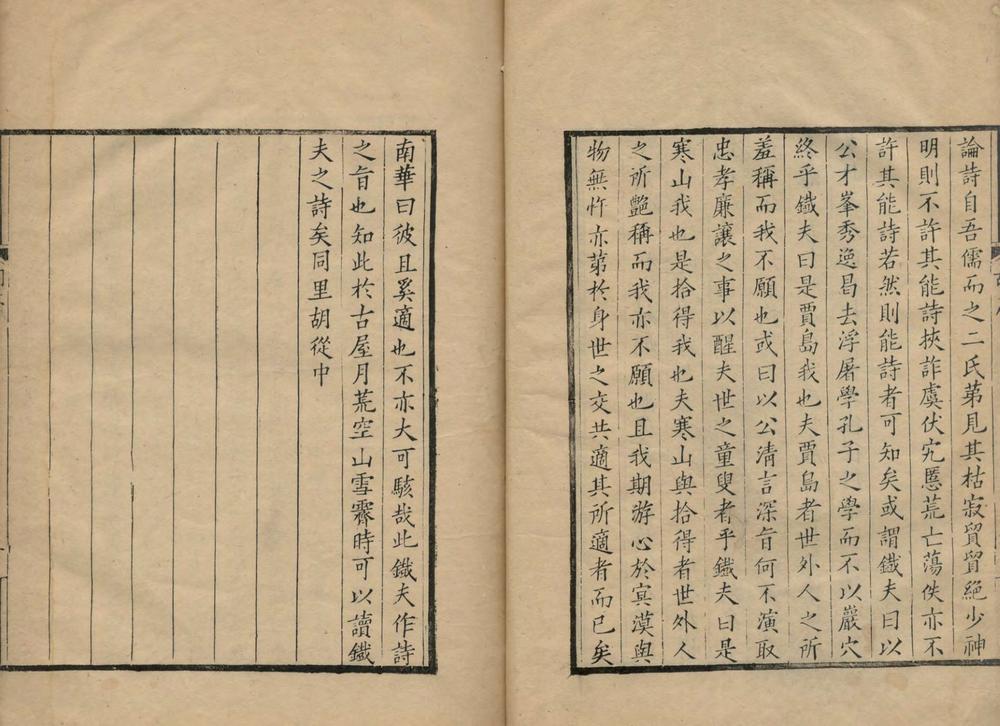 論詩自吾儒而之二氏苐見其枯寂貿貿絕少神
明則不許其能詩挾詐虞伏宄慝荒亡蕩佚亦不
許其能詩若然則能詩者可知矣或謂鐡夫曰以
公才峯秀逸昌去浮屠學孔子之學而不以巖穴
終乎鐡夫曰是賈島我也夫賈島者世外人之所
羞稱而我不願也或曰以公清言深旨何不演取
忠孝廉讓之事以醒夫世之童叟者乎鐡夫曰是
寒山我也是拾得我也夫寒山與拾得者世外人
之所艷稱而我亦不願也且我期游心於㝠漠與
物無忤亦苐於身世之交共適其所適者而已矣
南華曰彼且奚適也不亦大可駭哉此鐡夫作詩
之旨也知此於古屋月荒空山雪霽時可以讀鐡
夫之詩矣同里胡從中